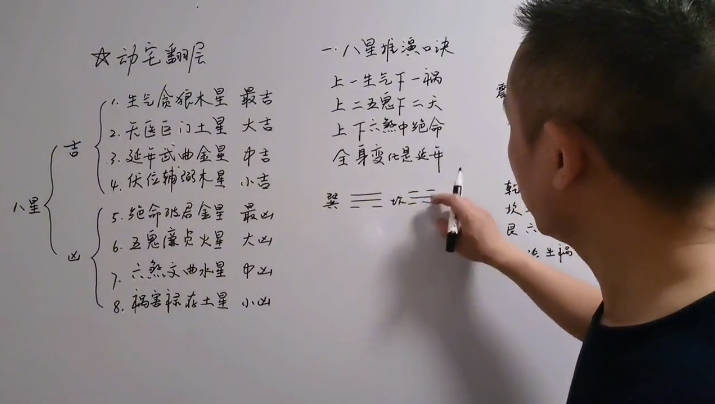 ☆动宅翻层
八星
吉
1. 生气贪狼木星 最吉
2. 天医巨门土星 大吉
3. 延年武曲金星 中吉
4. 伏位辅弼木星 小吉
凶
5. 绝命破君金星 最凶
6. 五鬼廉贞火星 大凶
7. 六煞文曲水星 中凶
8. 祸害禄存土星 小凶
一.八星推演口诀
上一生气下一祸
上二五鬼下二天
上下六煞中绝命
全身变化是延年
巽 ☴ 坎
震
乾
坎
艮六
生祸